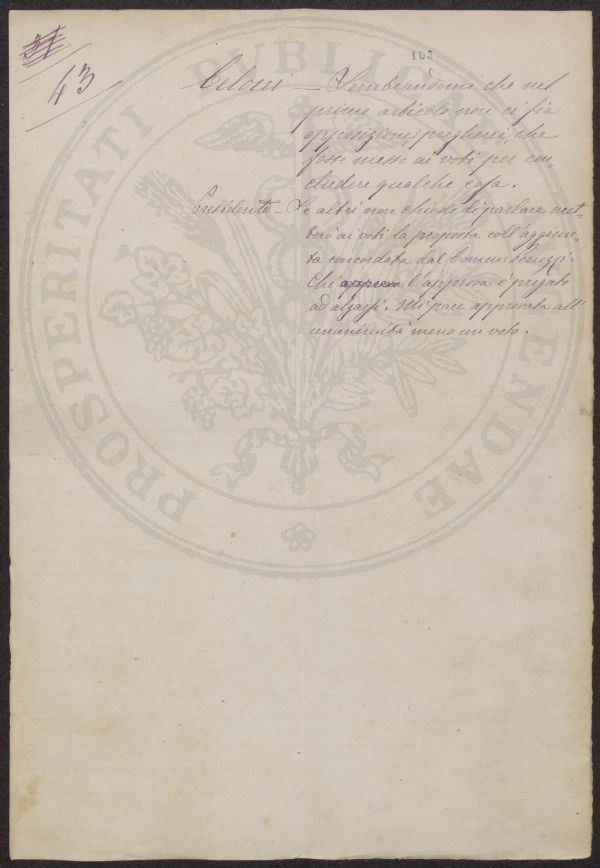 103
43
Celossi — Sembrandomi che nel
primo articolo non ci sia
opposizione, pregherei, che
fosse messo ai voti per con-
cludere qualche cosa.
Presidente — Se altri non chiede di parlare met-
terò ai voti la proposta coll'aggiun-
ta concordata dal Comm.
Chi l'approva è pregato
ad alzarsi. Mi pare approvata all'
unanimità meno un voto.
PROSPERITATI PUBLICAE AUGENDAE